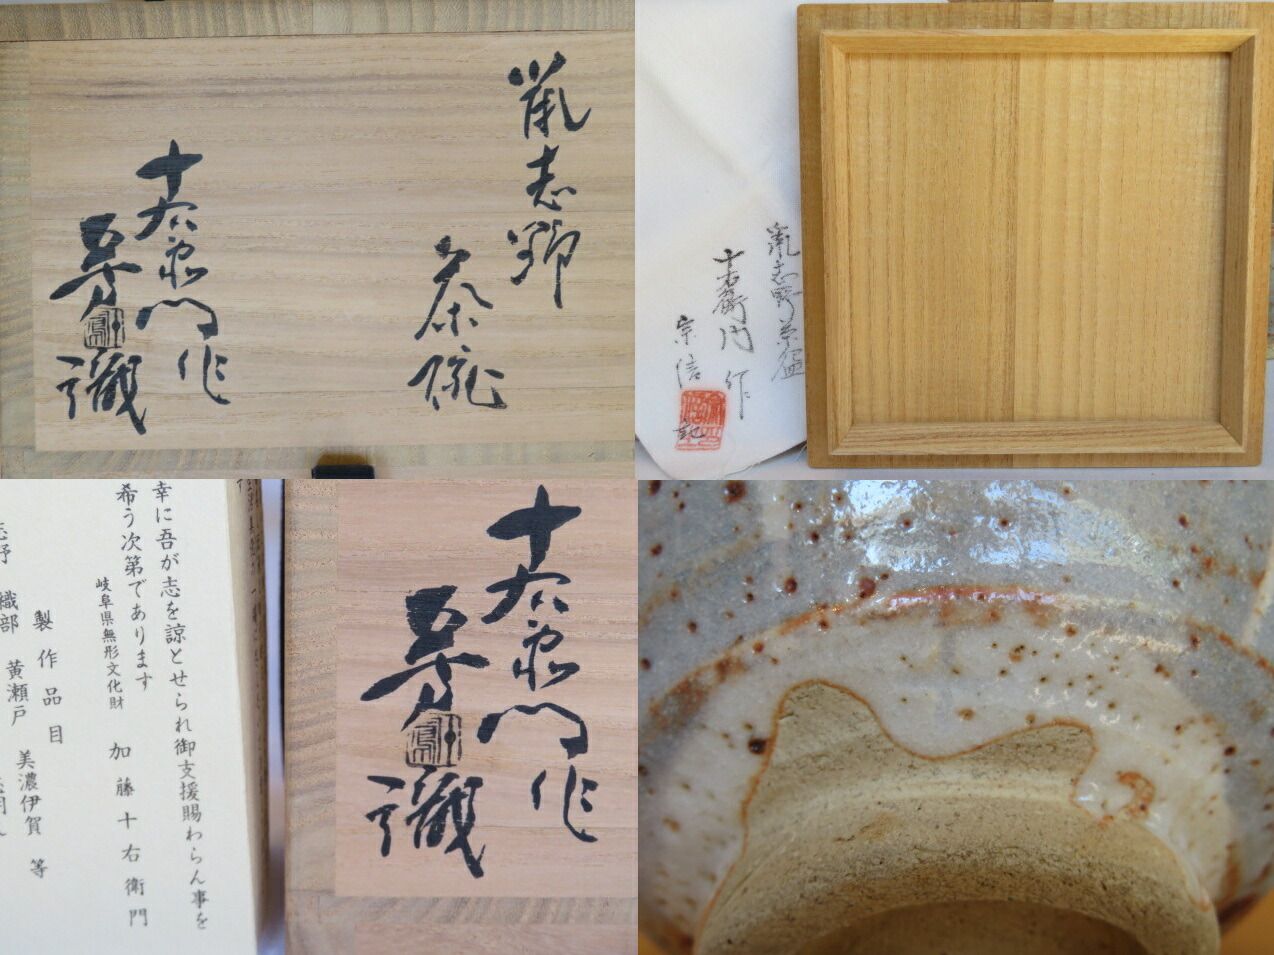 鼠志野
茶碗
十右衛門作
識
鼠志野茶盌
十右衛門 作
宗信
幸に吾が志を諒とせられ御支援賜わらん事を
希う次第であります
岐阜県無形文化財 加藤十右衛門
製作品目
志野 織部 黄瀬戸 美濃伊賀 等
十右衛門作
識